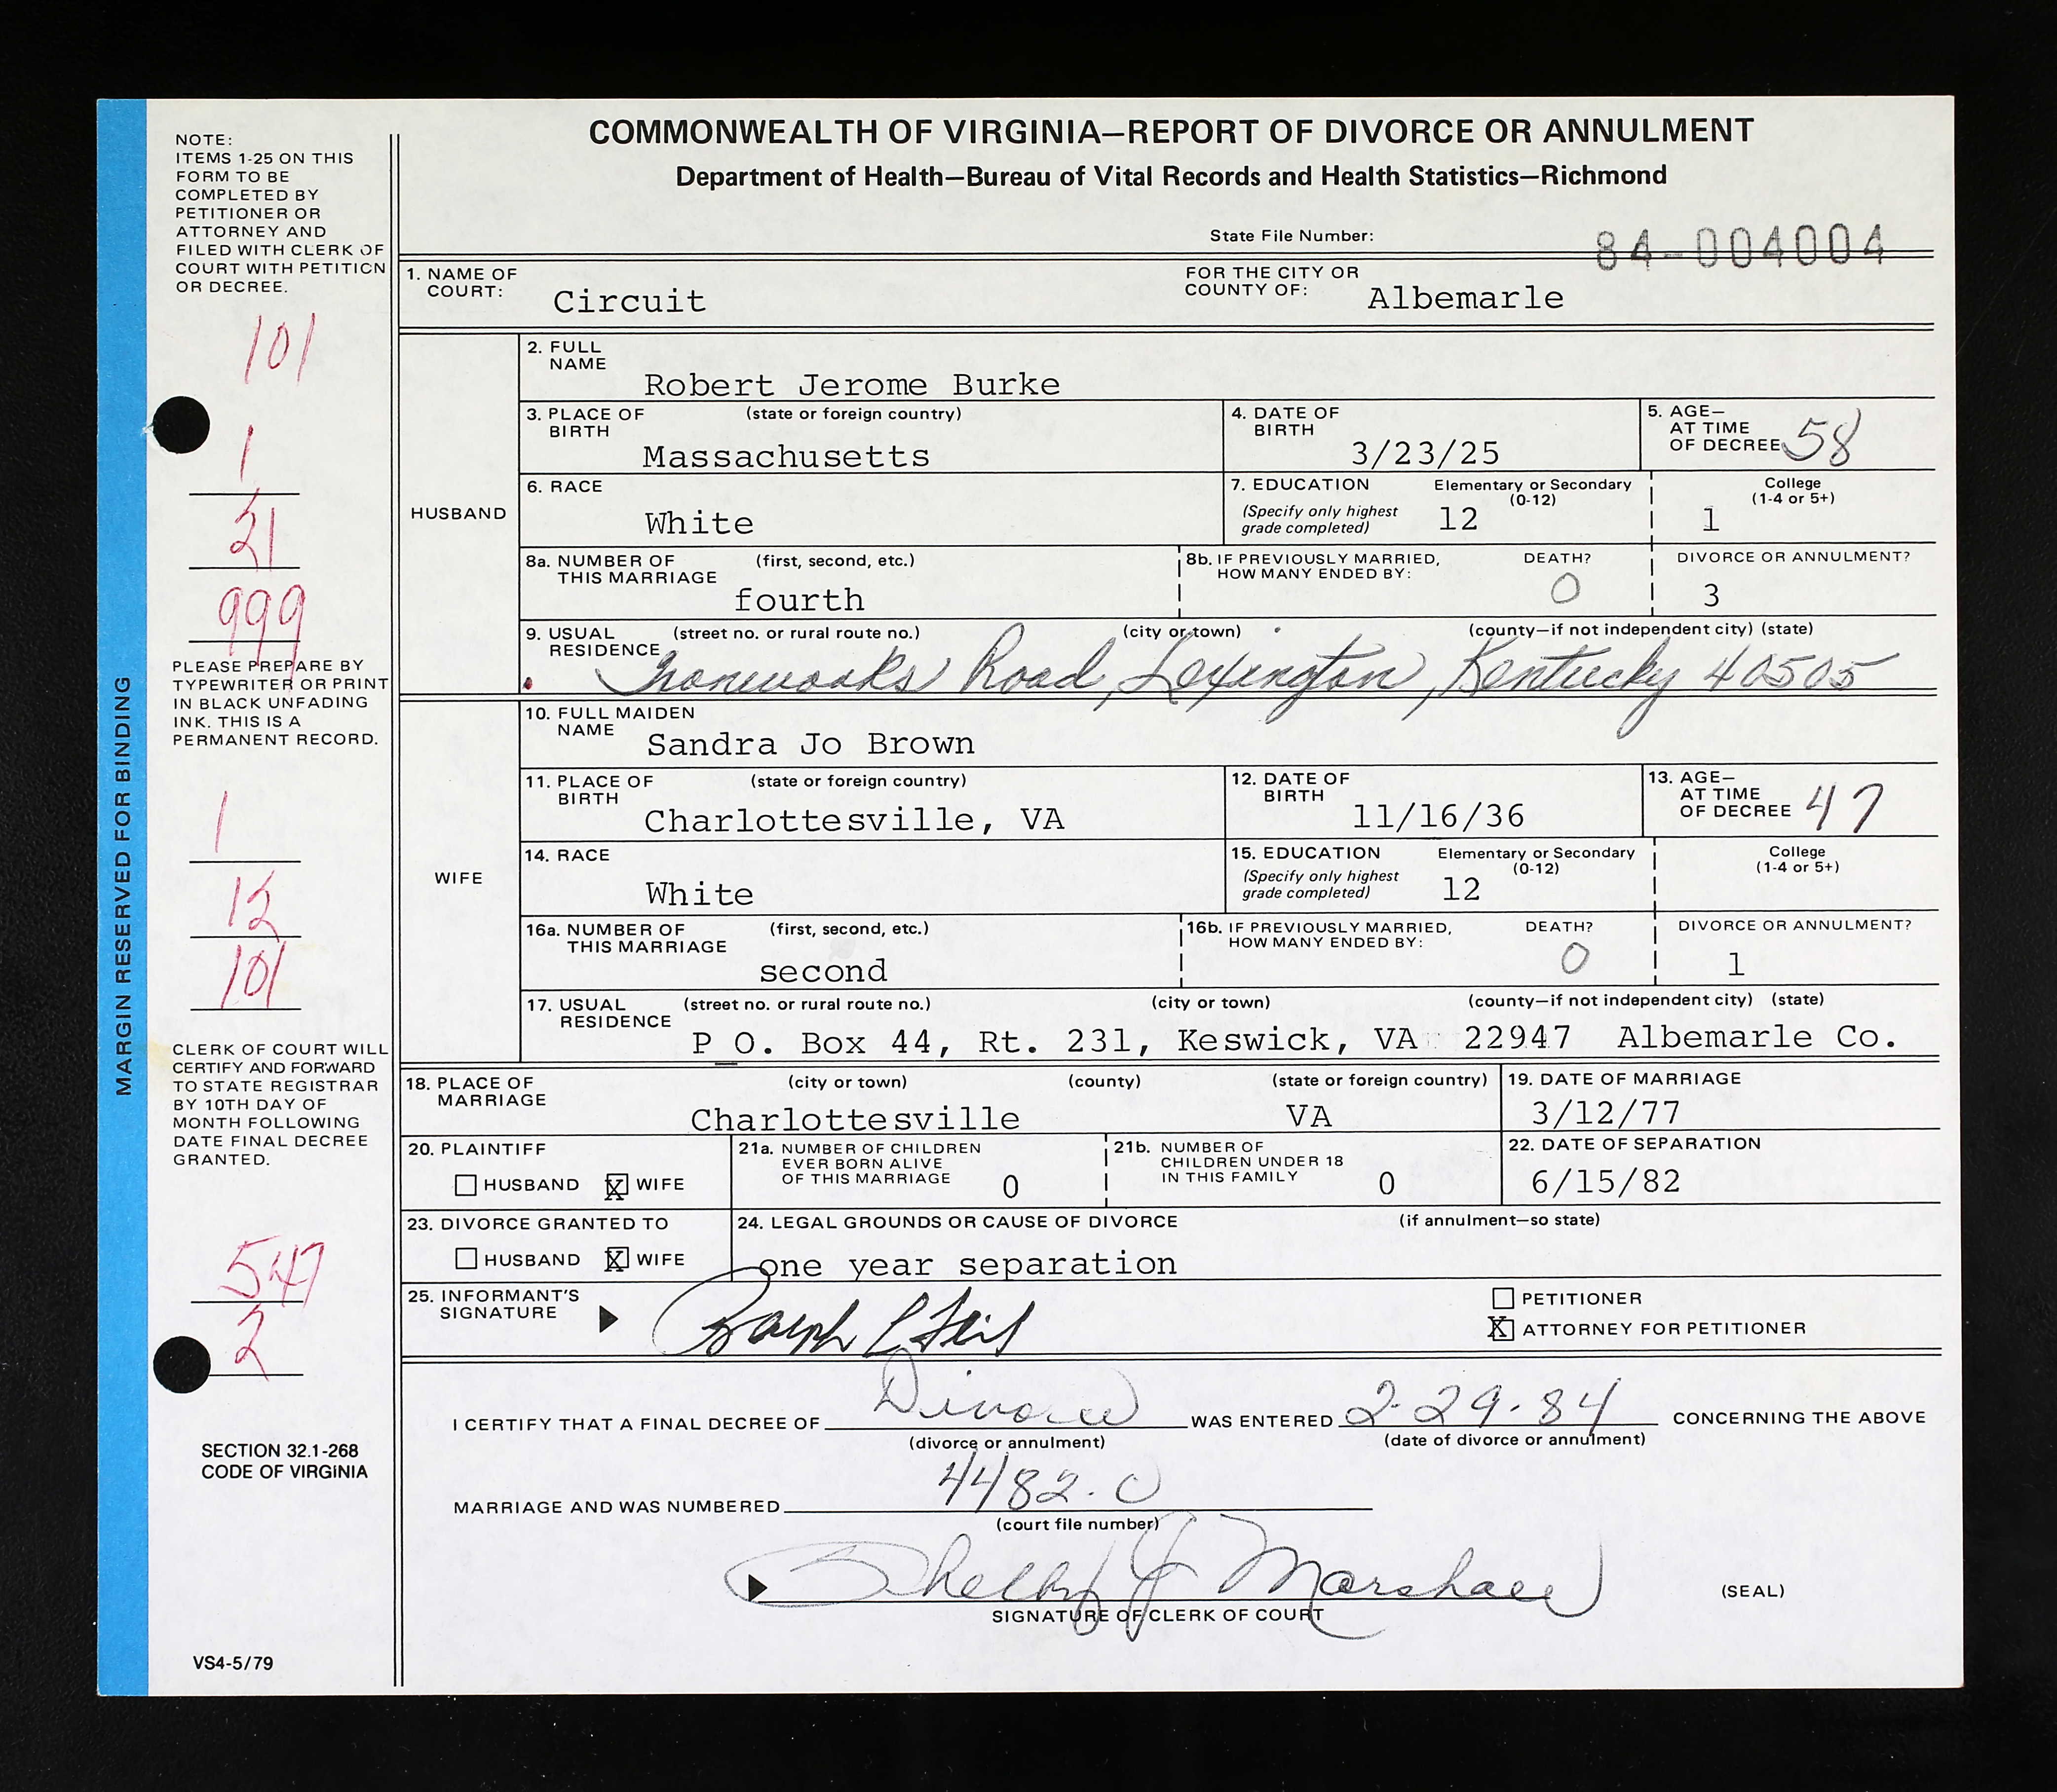 COMMONWEALTH OF VIRGINIA—REPORT OF DIVORCE OR ANNULMENT
Department of Health—Bureau of Vital Records and Health Statistics—Richmond
State File Number: 84-004004
NOTE:
ITEMS 1-25 ON THIS
FORM TO BE
COMPLETED BY
PETITIONER OR
ATTORNEY AND
FILED WITH CLERK OF
COURT WITH PETITION
OR DECREE.
101
1
21
999
PLEASE PREPARE BY
TYPEWRITER OR PRINT
IN BLACK UNFADING
INK. THIS IS A
PERMANENT RECORD.
1
12
101
CLERK OF COURT WILL
CERTIFY AND FORWARD
TO STATE REGISTRAR
BY 10TH DAY OF
MONTH FOLLOWING
DATE FINAL DECREE
GRANTED.
547
2
SECTION 32.1-268
CODE OF VIRGINIA
VS4-5/79
MARGIN RESERVED FOR BINDING
1. NAME OF COURT: Circuit FOR THE CITY OR COUNTY OF: Albemarle
HUSBAND
2. FULL NAME Robert Jerome Burke
3. PLACE OF BIRTH (state or foreign country) Massachusetts
4. DATE OF BIRTH 3/23/25
5. AGE— AT TIME OF DECREE 58
6. RACE White
7. EDUCATION (Specify only highest grade completed) Elementary or Secondary (0-12) 12 College (1-4 or 5+) 1
8a. NUMBER OF THIS MARRIAGE (first, second, etc.) fourth
8b. IF PREVIOUSLY MARRIED, HOW MANY ENDED BY: DEATH? 0 DIVORCE OR ANNULMENT? 3
9. USUAL RESIDENCE (street no. or rural route no.) (city or town) (county—if not independent city) (state)
Road, Lexington, Kentucky 40505
WIFE
10. FULL MAIDEN NAME Sandra Jo Brown
11. PLACE OF BIRTH (state or foreign country) Charlottesville, VA
12. DATE OF BIRTH 11/16/36
13. AGE— AT TIME OF DECREE 47
14. RACE White
15. EDUCATION (Specify only highest grade completed) Elementary or Secondary (0-12) 12 College (1-4 or 5+)
16a. NUMBER OF THIS MARRIAGE (first, second, etc.) second
16b. IF PREVIOUSLY MARRIED, HOW MANY ENDED BY: DEATH? 0 DIVORCE OR ANNULMENT? 1
17. USUAL RESIDENCE (street no. or rural route no.) (city or town) (county—if not independent city) (state)
P O. Box 44, Rt. 231, Keswick, VA 22947 Albemarle Co.
18. PLACE OF MARRIAGE (city or town) (county) (state or foreign country) Charlottesville VA
19. DATE OF MARRIAGE 3/12/77
20. PLAINTIFF HUSBAND X WIFE
21a. NUMBER OF CHILDREN EVER BORN ALIVE OF THIS MARRIAGE 0
21b. NUMBER OF CHILDREN UNDER 18 IN THIS FAMILY 0
22. DATE OF SEPARATION 6/15/82
23. DIVORCE GRANTED TO HUSBAND X WIFE
24. LEGAL GROUNDS OR CAUSE OF DIVORCE (if annulment—so state)
one year separation
25. INFORMANT'S SIGNATURE Ralph
PETITIONER
X ATTORNEY FOR PETITIONER
I CERTIFY THAT A FINAL DECREE OF Divorce WAS ENTERED 2-29-84 CONCERNING THE ABOVE
(divorce or annulment) (date of divorce or annulment)
MARRIAGE AND WAS NUMBERED 4482-C
(court file number)
Shelby J Marshall
SIGNATURE OF CLERK OF COURT
(SEAL)